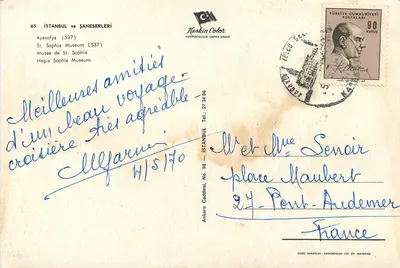 65. İSTANBUL ve ŞAHESERLERİ
Ayasofya (537)
St. Sophia Museum (537)
Musée de St. Sophie
Hagia Sophia Museum
Keskin Color
TÜRKİYE CUMHURİYETİ
POSTALARI
90
KURUŞ
Meilleures amitiés
d'un beau voyage-
croisière très agréable.
4/5/70
Ankara Caddesi, No. 98 - İSTANBUL Tel.: 27 34 06
Mr et Mme Senoir
place Maubert
27-Pont-Audemer
France